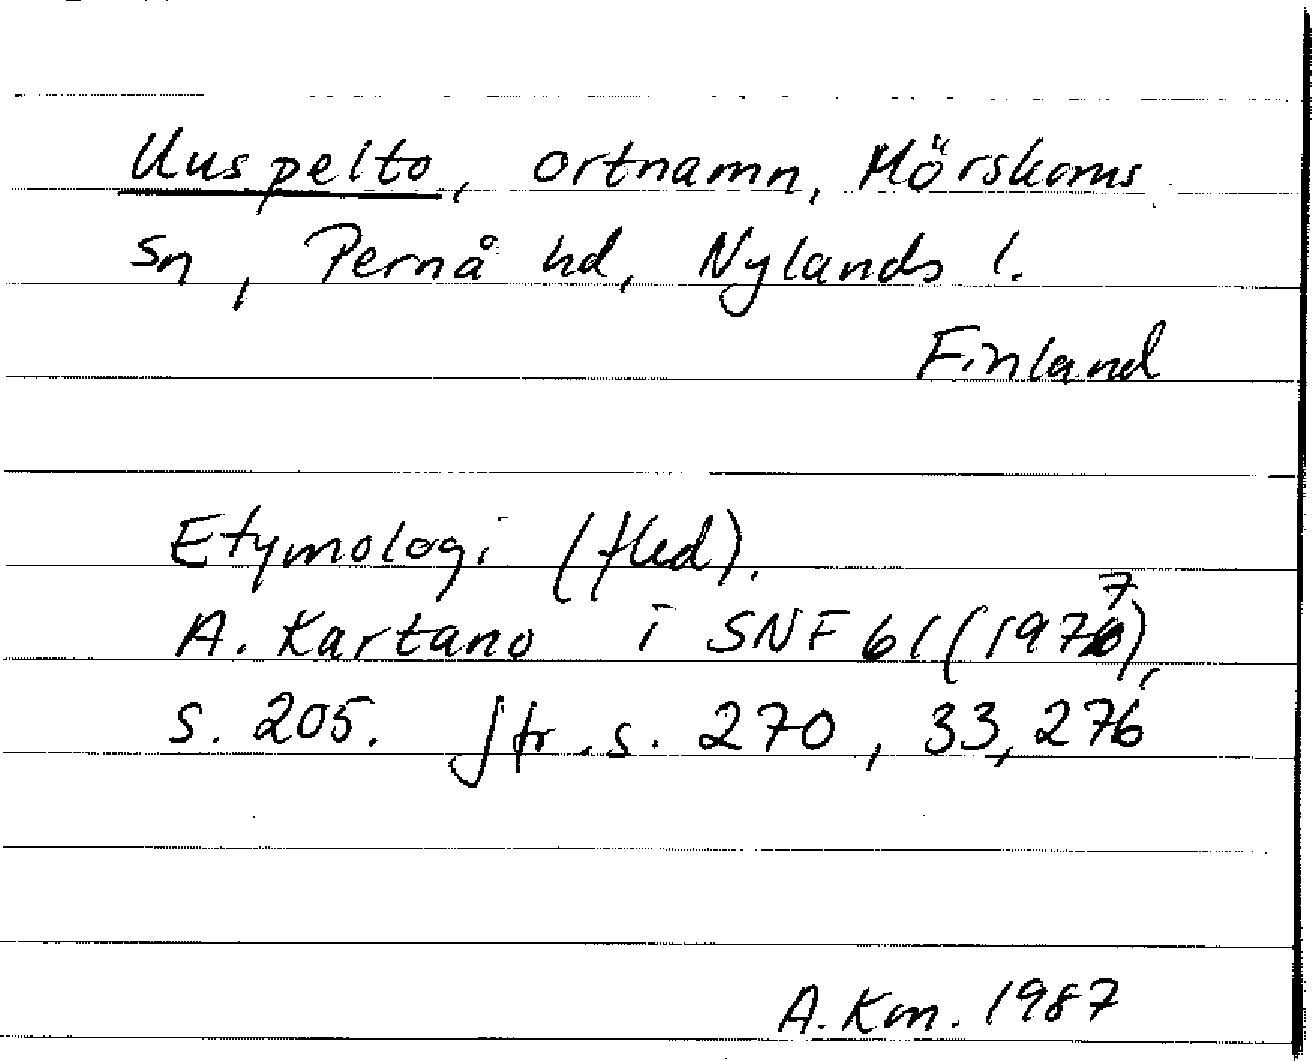 Uuspelto, ortnamn, Mörskoms
sn, Pernå hd, Nylands l.
Finland
Etymologi (fled).
A. Kartano i SNF 61 (1977),
s. 205. Jfr. s. 270, 33, 276
A. Km. 1987